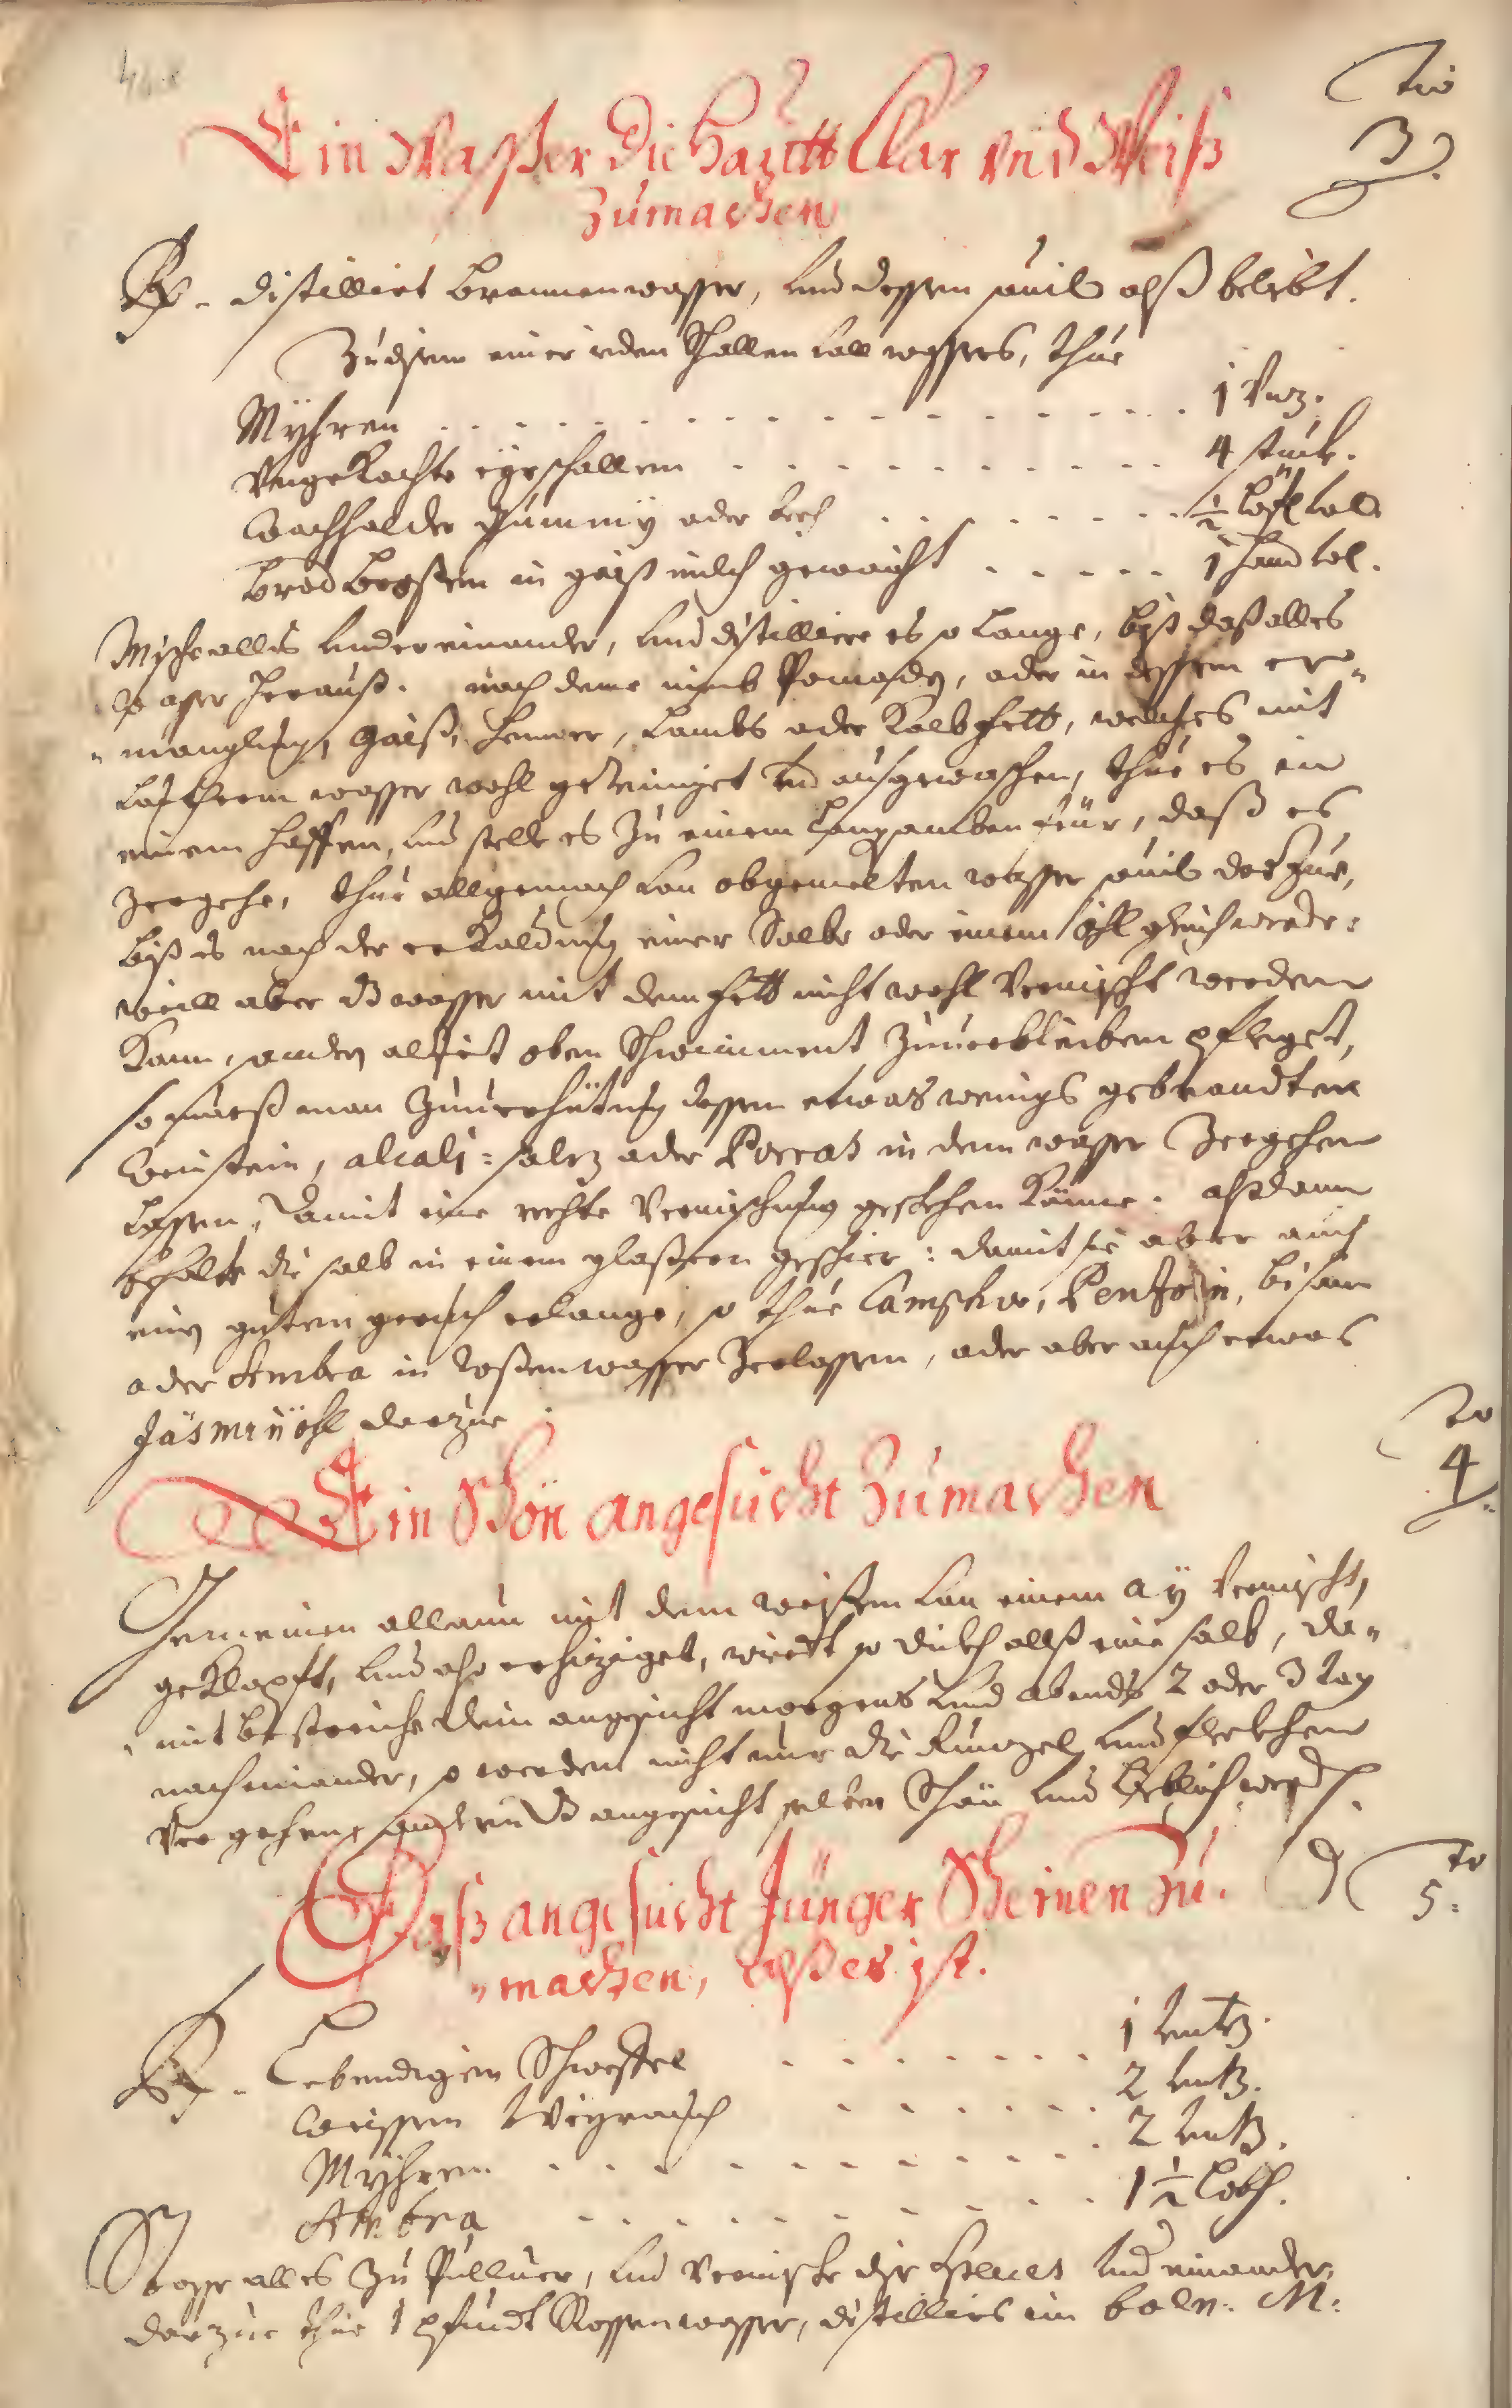 No
3.
Ein Waßer die Hautt Clar vnd Weiß
zumachen
Rp. distilliert Brunnenwasser, vnd dessen souil alß beliebt.
Zu disem einer jeden Schallen voll wassers, thue
Myhren . . . . . . . . . . 1 Vnz.
Vngekochte eÿrschallen . . . . . . . . 4 stuck.
Wachholder Gummÿ oder bech . . . . . . ½ Löfl voll
brod brosßen in gaiß milch gewaicht . . . . . 1 hand vol.
Mische alles vnder einander, vnd distilliere es so lange, biß daß alles
wasser herauß. nach deme nimb Pomady, oder in dessen er„
„manglung, Gaiß, Henner, Lambs oder Kalb fett, welches mit
lautherem wasser wohl gereiniget vnd ausgewaschen, thue es in
einem haffen, vnd stelle es zu einem Langsamben feür, daß es
zergehe, thue allgemach von obgemelten wasser souil darzue,
biß es nach der erkaldung einer Salbe oder einem öhl gleich werde:
weill aber dz wasser mit dem fett nicht wohl vermischt werden
kann, sonder alzeit oben Schwimment zuuerbleiben pfleget,
so mueß man zuuerhütung dessen etwas wenigs gebrandten
Weinstein, alcali: salz oder Porras in dem wasser zergehen
lassen, damit eine rechte Vermischung geschehen könne. alßdann
behalte die salb in einem glaßeren geschier: damit sie aber auch
ein guten geruch erlange, so thue Campher, Penzoin, bisam
oder Ambra in Roßenwasser zerlassen, oder aber auch etwas
Jäsmin öhl darzue.
No
4.
Ein Schön angesücht zumachen
Gemeinen allaun mit dem weissen von einem aÿ vermischt,
geklopft, vnd also erhiziget, wirdt so dickh allß eine salb, da„
„mit bestreiche dein angesicht morgens vnd abends 2 oder 3 tag
nacheinander, so werden nicht nur die Runzel vnd fleckhen
vergehen, sondern dz angesicht selber Schön vnd lieblich werden.
No
5.
Daß angesücht Jünger Scheinen zu„
„machen, alß es ist.
Rp. Lebendigen Schweffel . . . . . . . 1 vntz.
Weissen Weÿrauch . . . . . . 2 vntz.
Myhren . . . . . . . . . . 2 vntz.
Ambra . . . . . . . . . 1 ½ Loth.
Stosse alles zu Pulluer, vnd vermische dise species vnder einander,
darzue thue 1 pfundt Rossenwasser, distilliers im baln: M: